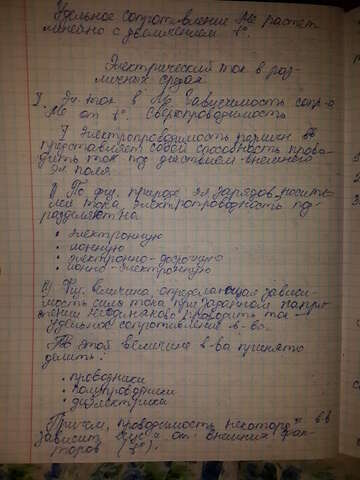 Удельное сопротивление Ме растет
линейно с увеличением t°.
Электрический ток в раз-
личных средах
I. Эл. ток в Ме. Зависимость сопр-я
Ме от t°. Сверхпроводимость
Электропроводимость различн. в-в
представляет собой способность прово-
дить ток под действием внешнего
эл. поля.
1) По физ. природе эл. зарядов-носите-
лей тока, электропроводность под-
разделяют на
• электронную
• ионную
• электронно-дырочную
• ионно-электронную
2) Физ. величина, определяющая зависи-
мость силы тока при заданном напря-
жении неодинаково проводить ток -
удельное сопротивление в-во.
По этой величине в-ва принято
делить:
• проводники
• полупроводники
• диэлектрики
Причем, проводимость некоторых в-в
зависит от внешних фак-
торов (t°).